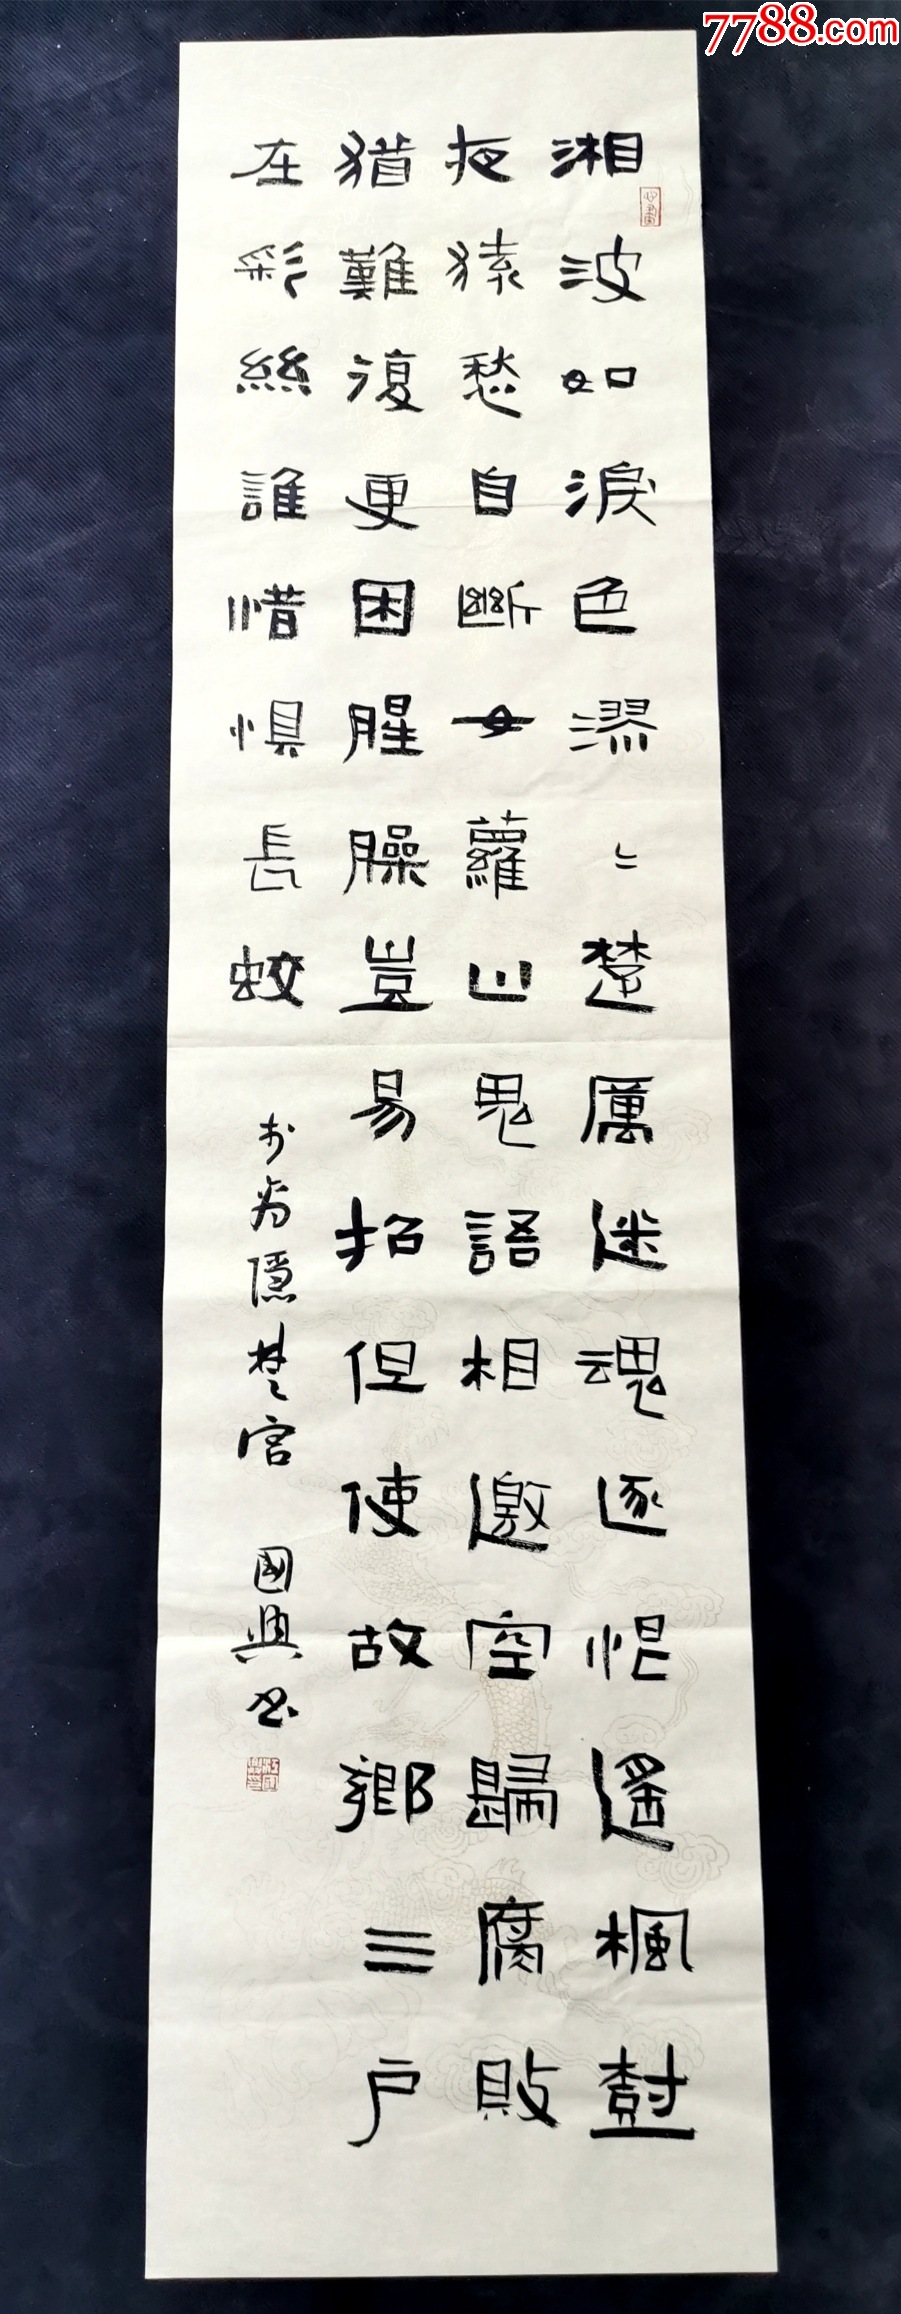 7788.com
湘波如淚色漻〻楚厲迷魂逐恨遙楓樹
夜猿愁自斷女蘿山鬼語相邀空歸腐敗
猶難復更困腥臊豈易招但使故鄉三户
在彩絲誰惜惧長蛟
李商隱楚宮 國興書